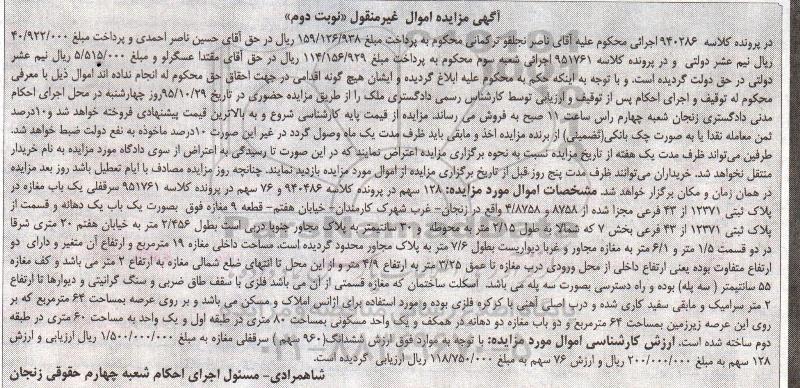 آگهی مزایده اموال غیرمنقول «نوبت دوم»
در پرونده کلاسه ۹۴۰۲۸۶ اجرائی محکوم علیه آقای ناصر نجلفو ترکمانی محکوم به پرداخت مبلغ ۱۵۹/۱۲۶/۹۳۸ ریال در حق آقای حسین ناصر احمدی و پرداخت مبلغ ۴۰/۹۲۲/۰۰۰
ریال نیم عشر دولتی و در پرونده کلاسه ۹۵۱۷۶۱ اجرائی شعبه سوم محکوم به پرداخت مبلغ ۱۱۴/۱۵۶/۹۲۹ ریال در حق آقای مقتدا عسگرلو و مبلغ ۵/۵۱۵/۰۰۰ ریال نیم عشر
دولتی در حق دولت گردیده است. و با توجه به اینکه حکم به محکوم علیه ابلاغ گردیده و ایشان هیچ گونه اقدامی در جهت احقاق حق محکوم له انجام نداده اند اموال ذیل با معرفی
محکوم له توقیف و اجرای احکام پس از توقیف و ارزیابی توسط کارشناس رسمی دادگستری ملک را از طریق مزایده حضوری در تاریخ ۹۵/۱۰/۲۹روز چهارشنبه در محل اجرای احکام
مدنی دادگستری زنجان شعبه چهارم راس ساعت ۱۱ صبح به فروش می رساند. مزایده از قیمت پایه کارشناسی شروع و به بالاترین قیمت پیشنهادی فروخته خواهد شد و۱۰درصد
ثمن معامله نقدا یا به صورت چک بانکی(تضمینی) از برنده مزایده اخذ و مابقی باید ظرف مدت یک ماه وصول گردد در غیر این صورت ۱۰درصد ماخوذه به نفع دولت ضبط خواهد شد.
طرفین می‌تواند ظرف مدت یک هفته از تاریخ مزایده نسبت به نحوه برگزاری مزایده اعتراض نمایند که در این صورت تا رسیدگی به اعتراض از سوی دادگاه مورد مزایده به نام خریدار
منتقل نخواهد شد. خریداران می‌توانند ظرف مدت پنج روز قبل از تاریخ برگزاری مزایده از اموال مورد مزایده بازدید نمایند. چنانچه روز مزایده مصادف با ایام تعطیل باشد روز بعد مزایده
در همان زمان و مکان برگزار خواهد شد. مشخصات اموال مورد مزایده: ۱۲۸ سهم در پرونده کلاسه ۹۴۰۴۸۶ و ۷۶ سهم در پرونده کلاسه ۹۵۱۷۶۱ سرقفلی یک باب مغازه در
پلاک ثبتی ۱۲۳۷۱ از ۴۳ فرعی مجزا شده از ۸۷۵۸ و ۴/۸۷۵۸ واقع در زنجان- غرب شهرک کارمندان- خیابان هفتم- قطعه ۹ مغازه فوق بصورت یک باب یک دهانه و قسمت از
پلاک ثبتی ۱۲۳۷۱ از ۴۳ فرعی بخش ۷ که شمالا به طول ۲/۱۵ متر به محوطه و ۲۰ سانتیمتر به پلاک مجاور جنوبا دربی است بطول ۲/۴۵۶ متر به خیابان هفتم ۲۰ متری شرقا
در دو قسمت ۱/۵ متر و ۶/۱ متر به مغازه مجاور و غربا دیواریست بطول ۷/۶ متر به پلاک مجاور محدود گردیده است. مساحت داخلی مغازه ۱۹ مترمربع و ارتفاع آن متغیر و دارای دو
ارتفاع متفاوت بوده یعنی ارتفاع داخلی از محل ورودی درب مغازه تا عمق ۳/۲۵ متر به ارتفاع ۴/۹ متر و از این محل تا انتهای ضلع شمالی مغازه به ارتفاع ۲ متر می باشد و کف مغازه
۵۵ سانتیمتر (سه پله) بوده و راه دسترسی بصورت سه پله می باشد. اسکلت ساختمان که مغازه قسمتی از آن می باشد فلزی با سقف طاق ضربی و سنگ گرانیتی و دیوارها تا ارتفاع
۲ متر سرامیک و مابقی سفید کاری شده و درب اصلی آهنی با کرکره فلزی بوده و مورد استفاده برای اژانس املاک و مسکن می باشد و بر روی عرصه بمساحت ۶۴ مترمربع که بر
روی این عرصه زیرزمین بمساحت ۶۴ مترمربع و دو باب مغازه دو دهانه در همکف و یک واحد مسکونی بمساحت ۸۰ متری در طبقه اول و یک واحد به مساحت ۶۰ متری در طبقه
دوم ساخته شده است. ارزش کارشناسی اموال مورد مزایده: با توجه به موارد فوق ارزش ششدانگ(۹۶۰ سهم) سرقفلی مغازه به مبلغ ۱/۵۰۰/۰۰۰/۰۰۰ ریال ارزیابی و ارزش
۱۲۸ سهم به مبلغ ۲۰۰/۰۰۰/۰۰۰ ریال و ارزش ۷۶ سهم به مبلغ ۱۱۸/۷۵۰/۰۰۰ ریال ارزیابی گردیده است.
شاهمرادی- مسئول اجرای احکام شعبه چهارم حقوقی زنجان